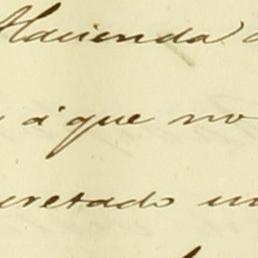 Hacienda
á que no
cretado